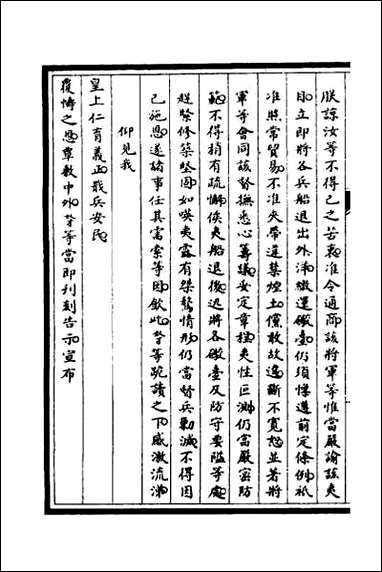 朕諒汝等不得已之苦衷准令通商該將軍等惟當嚴諭該夷
目立即將各兵船退出外洋繳還礮臺仍須懍遵前定條例祇
准照常貿易不准夾帶違禁煙土儻敢故違斷不寬恕並著將
軍等會同該督撫悉心籌議妥定章程夷性叵測仍當嚴密防
範不得稍有疏懈俟夷船退後迅將各礮臺及防守要隘等處
趕緊修築堅固如𠸄夷露有桀驁情形仍當督兵剿滅不得因
已施恩遂諸事任其需索等因欽此等跪讀之下感激流涕
仰見我
皇上仁育義正戢兵安民
覆幬之恩覃敷中外等當即刋刻告示宣布